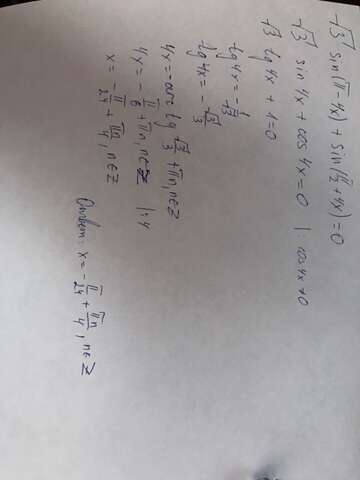 √3 sin(π-4x)+sin(π/2+4x)=0
√3 sin 4x + cos 4x = 0 | : cos 4x ≠ 0
√3 tg 4x + 1 = 0
tg 4x = -1/√3
tg 4x = -√3/3
4x = -arc tg √3/3 + πn, n∈Z
4x = -π/6 + πn, n∈Z |:4
x = -π/24 + πn/4, n∈Z
Ответ: x = -π/24 + πn/4, n∈Z